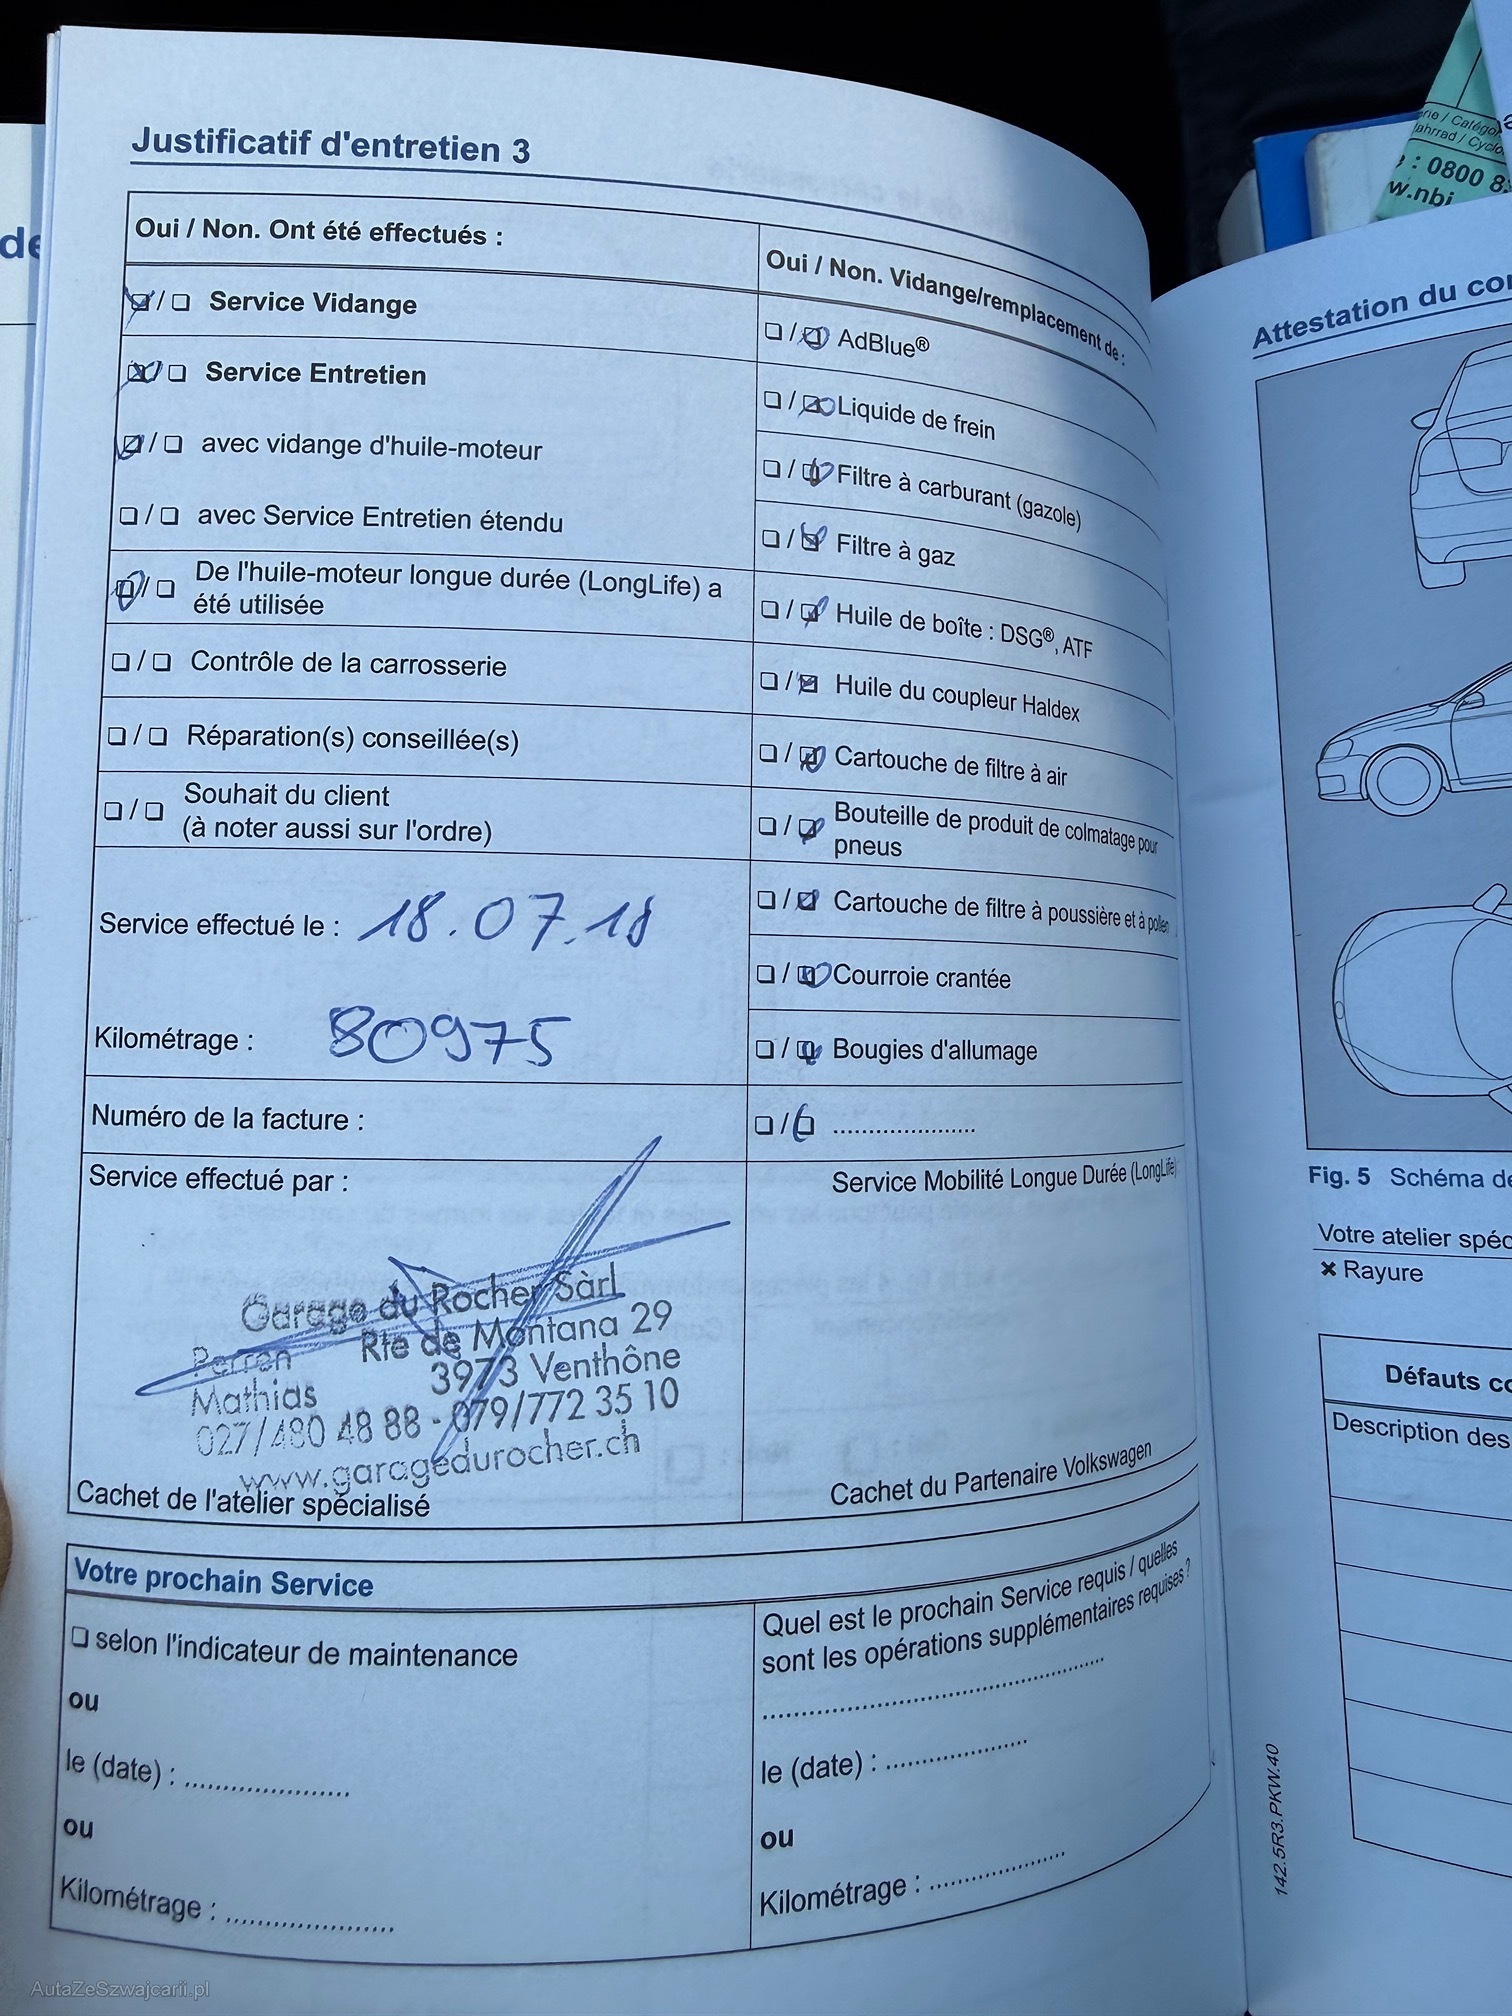 Justificatif d'entretien 3
Oui / Non. Ont été effectués :
☑ / ❏ Service Vidange
☒ / ❏ Service Entretien
☑ / ❏ avec vidange d'huile-moteur
❏ / ❏ avec Service Entretien étendu
☑ / ❏ De l'huile-moteur longue durée (LongLife) a
été utilisée
❏ / ❏ Contrôle de la carrosserie
❏ / ❏ Réparation(s) conseillée(s)
❏ / ❏ Souhait du client
(à noter aussi sur l'ordre)
Service effectué le : 18.07.18
Kilométrage : 80975
Numéro de la facture :
Service effectué par :
Garage du Rocher Sàrl
Perren Rte de Montana 29
Mathias 3973 Venthône
027/480 48 88 - 079/772 35 10
www.garagedurocher.ch
Cachet de l'atelier spécialisé
Oui / Non. Vidange/remplacement de :
❏ / ☑ AdBlue®
❏ / ☑ Liquide de frein
❏ / ☑ Filtre à carburant (gazole)
❏ / ☑ Filtre à gaz
❏ / ☑ Huile de boîte : DSG®, ATF
❏ / ☑ Huile du coupleur Haldex
❏ / ☑ Cartouche de filtre à air
❏ / ☑ Bouteille de produit de colmatage pour
pneus
❏ / ☑ Cartouche de filtre à poussière et à pollen
❏ / ☑ Courroie crantée
❏ / ☑ Bougies d'allumage
❏ / ☑ .....................
Service Mobilité Longue Durée (LongLife)
Cachet du Partenaire Volkswagen
Votre prochain Service
❏ selon l'indicateur de maintenance
ou
le (date) : .....................
ou
Kilométrage : .....................
Quel est le prochain Service requis / quelles
sont les opérations supplémentaires requises ?
..........................................
le (date) : .................
ou
Kilométrage : .................
de
Attestation du
Fig. 5 Schéma
Votre atelier
✖ Rayure
Défauts
Description des
142.5R3.PKW.40
: 0800
AutaZeSzwajcarii.pl